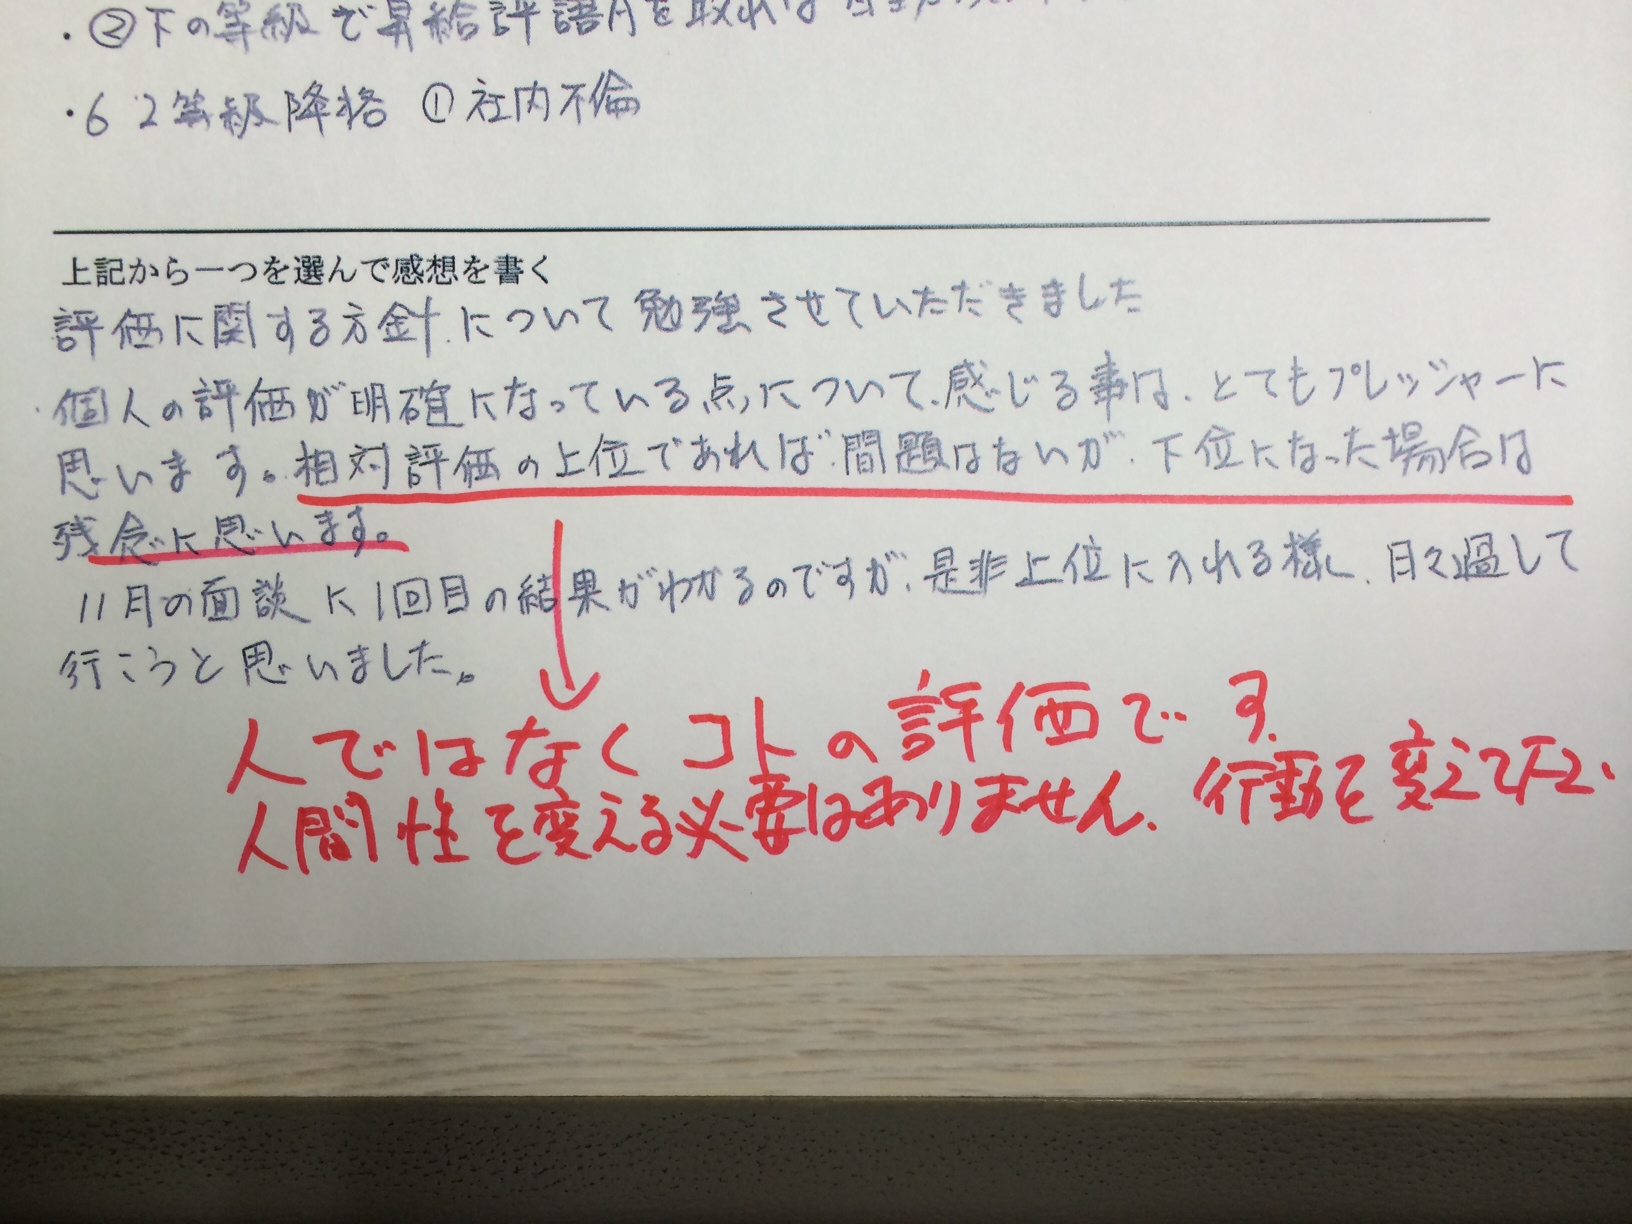 ・②下の等級で昇給評語Aを取れば
・6 2等級降格 ①社内不倫
上記から一つを選んで感想を書く
評価に関する方針.について勉強させていただきました
個人の評価が明確になっている点.について.感じる事は.とてもプレッシャーに
思います。相対評価の上位であれば.問題はないが.下位になった場合は
残念に思います。
11月の面談に1回目の結果がわかるのですが.是非上位に入れる様.日々過して
行こうと思いました。
人ではなくコトの評価です.
人間性を変える必要はありません.行動を変えて下さい